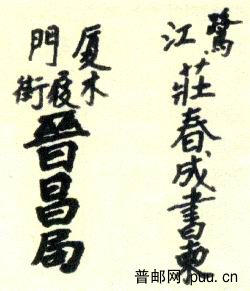 鷺江莊春成書柬
厦門木屐街晉昌局
普邮网.puu.cn